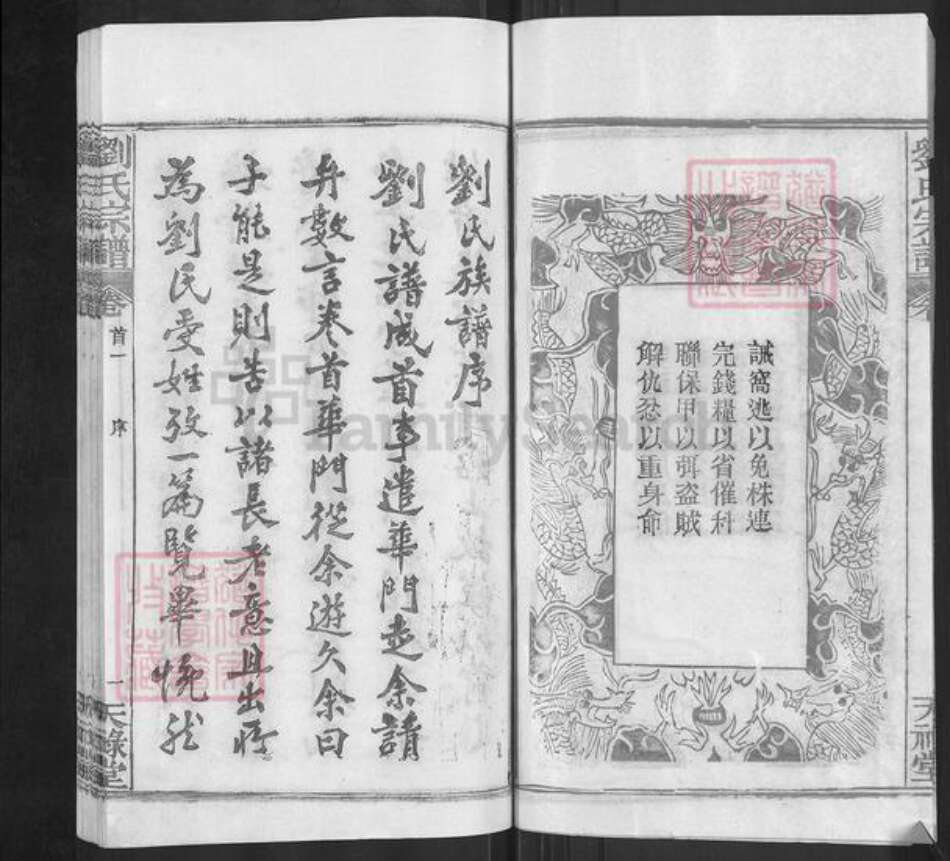 誡窩逃以免株連
完錢糧以省催科
聯保甲以弭盜賊
解仇忿以重身命
劉氏族譜序
劉氏譜成首事遣華門走余請
弁數言卷首華門從余遊久余曰
子能是則苦以諸長老意且出所
為劉氏受姓攷一篇覽畢恍然
劉氏宗譜
卷
首一
序
一
天祿堂
FamilySearch